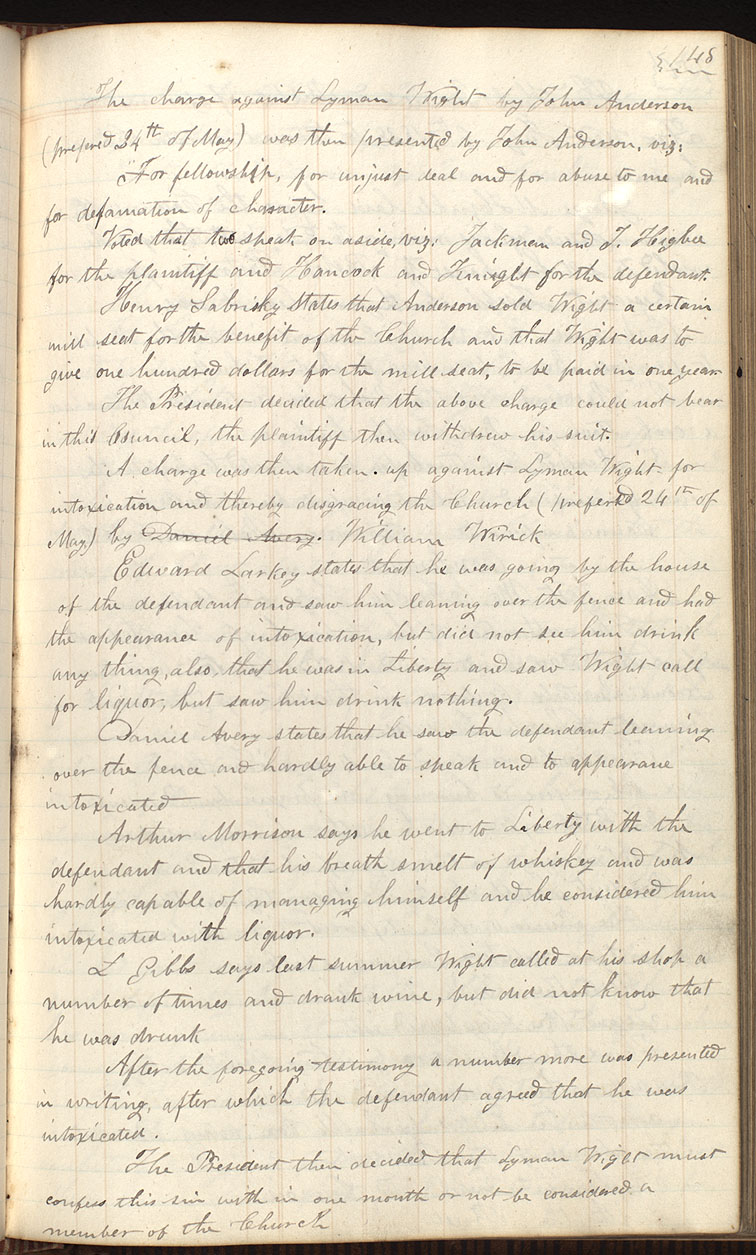 148
The charge against Lyman Wight by John Anderson
(prefered 24th of May) was then presented by John Anderson, viz:
"For fellowship, for unjust deal and for abuse to me and
for defamation of character.
Voted that two speak on a side, viz: Jackman and I. Higbee
for the plaintiff and Hancock and Knight for the defendant.
Henry Sabrisky states that Anderson sold Wight a certain
mill seat for the benefit of the Church and that Wight was to
give one hundred dollars for the mill seat, to be paid in one year
The President decided that the above charge could not bear
in this Council, the plaintiff then withdrew his suit.
A charge was then taken. up against Lyman Wight for
intoxication and thereby disgracing the Church (prefered 24th of
May) by Daniel Avery. William Wirick
Edward Larkey states that he was going by the house
of the defendant and saw him leaning over the fence and had
the appearance of intoxication, but did not see him drink
any thing, also, that he was in Liberty and saw Wight call
for liquor, but saw him drink nothing.
Daniel Avery states that he saw the defendant leaning
over the fence and hardly able to speak and to appearane
intoxicated
Arthur Morrison says he went to Liberty with the
defendant and that his breath smelt of whiskey and was
hardly capable of managing himself and he considered him
intoxicated with liquor.
L Gibbs says last summer Wight called at his shop a
number of times and drank wine, but did not know that
he was drunk
After the foregoing testimony a number more was presented
in writing, after which the defendant agreed that he was
intoxicated.
The President then decided that Lyman Wight must
confess this sin with in one month or not be considered a
member of the Church